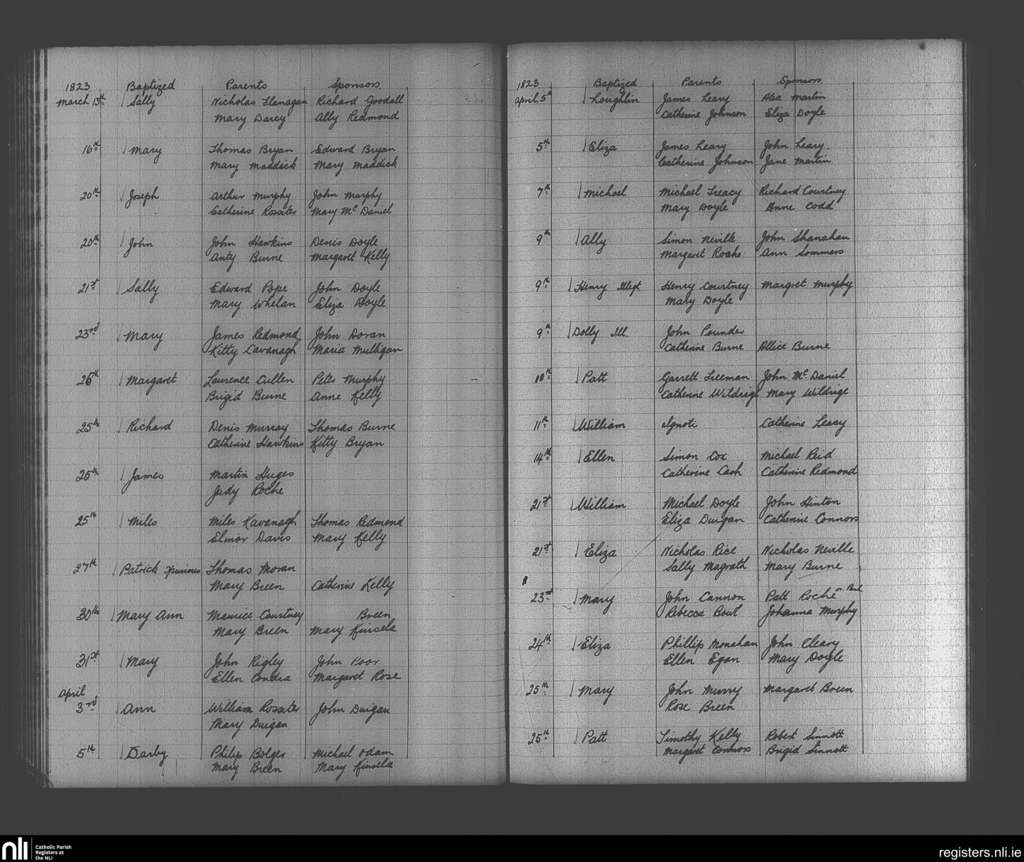 1823 Baptized Parents Sponsors
March 13th Sally Nicholas Flanagan Richard Goodall
Mary Darcy Ally Redmond
16th Mary Thomas Bryan Edward Bryan
Mary Maddick Mary Maddick
20th Joseph Arthur Murphy John Murphy
Catherine Rossiter Mary McDaniel
20th John John Hawkins Denis Doyle
Anty Burne Margaret Kelly
21st Sally Edward Pope John Doyle
Mary Whelan Eliza Doyle
23rd Mary James Redmond John Doran
Kitty Cavanagh Maria Mulligan
26th Margaret Laurence Cullen Peter Murphy
Brigid Burne Anne Kelly
25th Richard Denis Murray Thomas Burne
Catherine Hawkins Kitty Bryan
25th James Martin Huges
Judy Roche
25th Miles Miles Kavanagh Thomas Redmond
Elinor Davis Mary Kelly
27th Patrick Thomas Moran
Mary Breen Catherine Kelly
30th Mary Ann Maurice Courtney Breen
Mary Breen Mary Kinsela
31st Mary John Rigley John Poor
Ellen Condra Margaret Rose
April
3rd Ann William Rossiter John Durgan
Mary Durgan
5th Darby Philip Bolger Michael Odam
Mary Breen Mary Kinsela
1823 Baptized Parents Sponsors
April 5th Loughlin James Leary Martin
Catherine Johnson Eliza Doyle
5th Eliza James Leary John Leary
Catherine Johnson Jane Martin
7th Michael Michael Treacy Richard Courtney
Mary Doyle Anne Codd
9th Ally Simon Neville John Shanahan
Margaret Roahe Ann Sommers
9th Henry Illegt Henry Courtney Margret Murphy
Mary Doyle
9th Dolly Ill. John Pounder
Catherine Burne Allice Burne
10th Patt Garrett Freeman John McDaniel
Catherine Wildrige Mary Wildrige
11th William Ignoti Catherine Leacy
14th Ellen Simon Coe Michael Reid
Catherine Cash Catherine Redmond
21st William Michael Doyle John Hinton
Eliza Durgan Catherine Connors
21st Eliza Nicholas Rice Nicholas Neville
Sally Magrath Mary Burne
23rd Mary John Cannon Patt Roche
Rebecca Bowl Johanna Murphy
24th Eliza Phillip Monahan John Cleary
Ellen Egan Mary Doyle
25th Mary John Murry Margaret Breen
Rose Breen
25th Patt Timothy Kelly Robert Sinnott
Margaret Connors Brigid Sinnott
nli Catholic Parish
Registers at
the NLI
registers.nli.ie